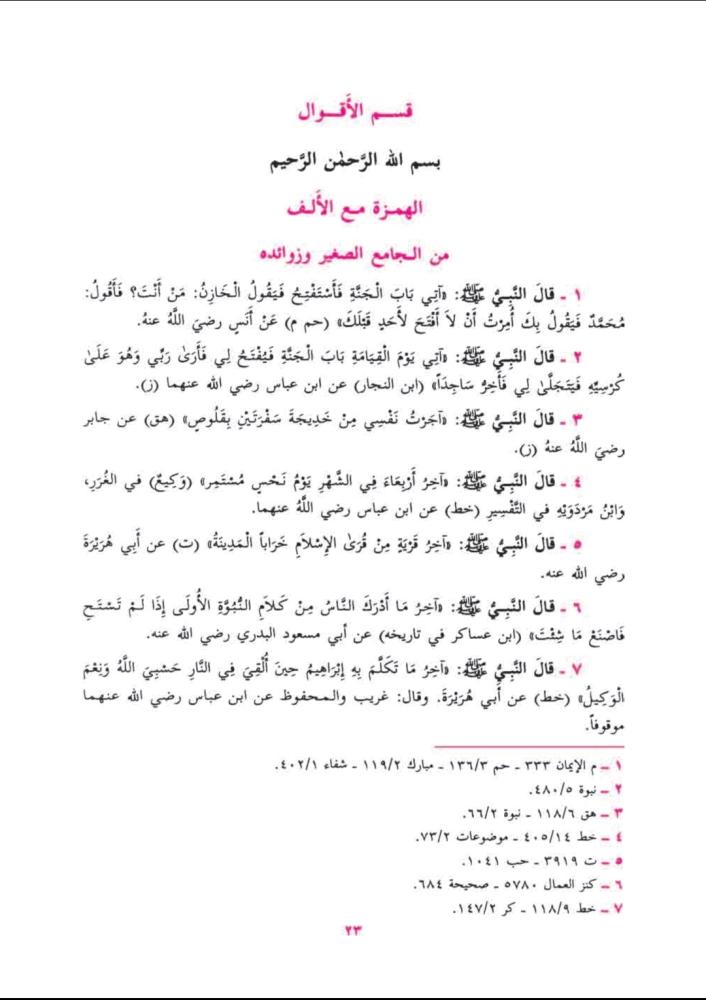 قسم الأَقوال
بسم الله الرَّحمٰن الرَّحيم
الهمزة مع الأَلف
من الجامع الصغير وزوائده
١ ـ قالَ النَّبِيُّ ﷺ: «آتِي بَابَ الْجَنَّةِ فَأَسْتَفْتِحُ فَيَقُولُ الْخَازِنُ: مَنْ أَنْتَ؟ فَأَقُولُ:
مُحَمَّدٌ فَيَقُولُ بِكَ أُمِرْتُ أَنْ لاَ أَفْتَحَ لأَحَدٍ قَبْلَكَ» (حم م) عَنْ أَنَسٍ رضيَ اللَّهُ عنهُ.
٢ ـ قالَ النَّبِيُّ ﷺ: «آتِي يَوْمَ الْقِيَامَةِ بَابَ الْجَنَّةِ فَيُفْتَحُ لِي فَأَرَىٰ رَبِّي وَهُوَ عَلَىٰ
كُرْسِيِّهِ فَيَتَجَلَّىٰ لِي فَأَخِرُّ سَاجِدَاً» (ابن النجار) عن ابن عباس رضي الله عنهما (ز).
٣ ـ قالَ النَّبِيُّ ﷺ: «آجَرْتُ نَفْسِي مِنْ خَدِيجَةَ سَفْرَتَيْنِ بِقَلُوصٍ» (هق) عن جابر
رضيَ اللَّهُ عنهُ (ز).
٤ ـ قالَ النَّبِيُّ ﷺ: «آخِرُ أَرْبِعَاءَ فِي الشَّهْرِ يَوْمُ نَحْسٍ مُسْتَمِر» (وَكِيعٌ) في الغُرَرِ،
وَابْنُ مَرْدَوَيْهِ في التَّفْسِيرِ (خط) عن ابن عباس رضي اللَّهُ عنهما.
٥ ـ قالَ النَّبِيُّ ﷺ: «آخِرُ قَرْيَةٍ مِنْ قُرَىٰ الإِسْلاَمِ خَرَاباً الْمَدِينَةُ» (ت) عن أَبِي هُرَيْرَةَ
رضي الله عنه.
٦ ـ قالَ النَّبِيُّ ﷺ: «آخِرُ مَا أَدْرَكَ النَّاسُ مِنْ كَلاَمِ النُّبُوَّةِ الأُولَى إِذَا لَمْ تَسْتَحِ
فَاصْنَعْ مَا شِئْتَ» (ابن عساكر في تاريخه) عن أبي مسعود البدري رضي الله عنه.
٧ ـ قالَ النَّبِيُّ ﷺ: «آخِرُ مَا تَكَلَّمَ بِهِ إِبْرَاهِيمُ حِينَ أُلْقِيَ فِي النَّارِ حَسْبِيَ اللَّهُ وَنِعْمَ
الْوَكِيلُ» (خط) عن أَبي هُرَيْرَةَ. وقال: غريب والمحفوظ عن ابن عباس رضي الله عنهما
موقوفاً.
١ ـ م الإيمان ٣٣٣ ـ حم ١٣٦/٣ ـ مبارك ١١٩/٢ ـ شفاء ٤٠٢/١.
٢ ـ نبوة ٤٨٠/٥.
٣ ـ هق ١١٨/٦ ـ نبوة ٦٦/٢.
٤ ـ خط ٤٠٥/١٤ ـ موضوعات ٧٣/٢.
٥ ـ ت ٣٩١٩ ـ حب ١٠٤١.
٦ ـ كنز العمال ٥٧٨٠ ـ صحيحة ٦٨٤.
٧ ـ خط ١١٨/٩ ـ كر ١٤٧/٢.
٢٣